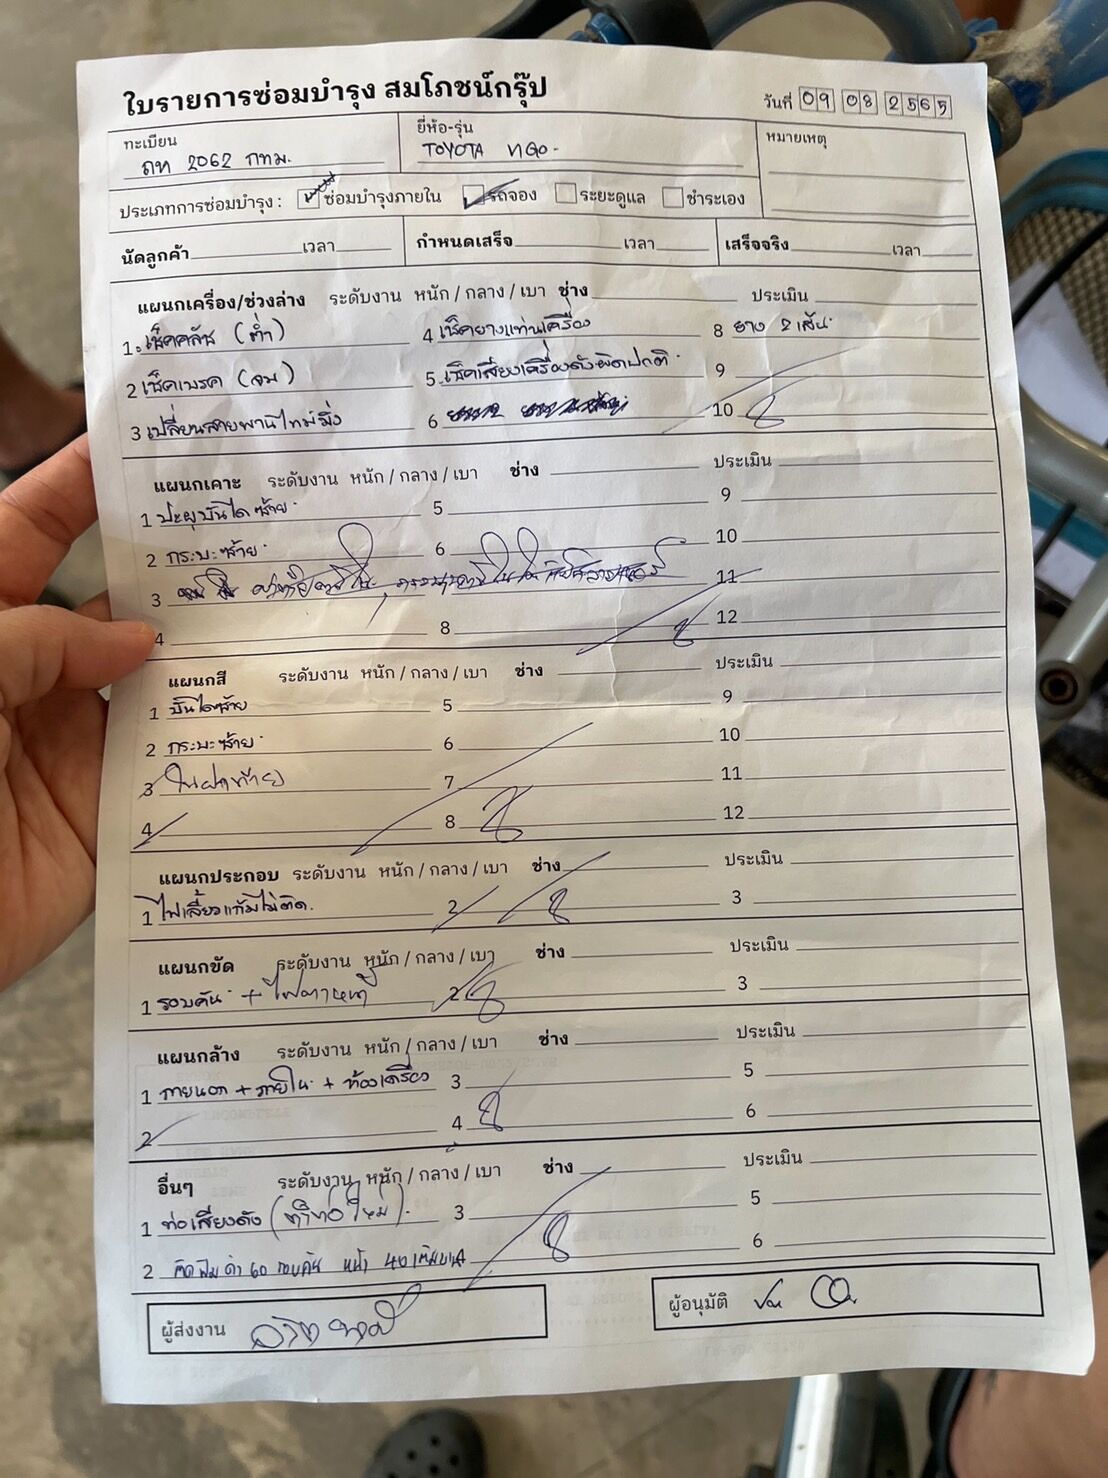 ใบรายการซ่อมบำรุง สมโภชน์กรุ๊ป
วันที่ 09 08 2565
ทะเบียน ถท 2062 กทม.
ยี่ห้อ-รุ่น TOYOTA VIGO-
หมายเหตุ
ประเภทการซ่อมบำรุง : ซ่อมบำรุงภายใน รถจอง ระยะดูแล ชำระเอง
นัดลูกค้า เวลา กำหนดเสร็จ เวลา เสร็จจริง เวลา
แผนกเครื่อง/ช่วงล่าง ระดับงาน หนัก / กลาง / เบา ช่าง ประเมิน
1. เช็คคลัช (ต่ำ) 4 เช็คยางแท่นเครื่อง 8 ยาง 2 เส้น
2 เช็คเบรค (จม) 5. เช็คเสียงเครื่องดังผิดปกติ 9
3 เปลี่ยนสายพานไทม์มิ่ง 6 10
แผนกเคาะ ระดับงาน หนัก / กลาง / เบา ช่าง ประเมิน
1 ปะผุบันไดซ้าย 5 9
2 กระบะซ้าย 6 10
3 11
4 8 12
แผนกสี ระดับงาน หนัก / กลาง / เบา ช่าง ประเมิน
1 บันไดซ้าย 5 9
2 กระบะซ้าย 6 10
3 ในฝาท้าย 7 11
4 8 12
แผนกประกอบ ระดับงาน หนัก / กลาง / เบา ช่าง ประเมิน
1 ไฟเลี้ยวแก้มไม่ติด. 2 3
แผนกขัด ระดับงาน หนัก / กลาง / เบา ช่าง ประเมิน
1 รอบคัน + ไฟตาหน้า 2 3
แผนกล้าง ระดับงาน หนัก / กลาง / เบา ช่าง ประเมิน
1 ภายนอก + ภายใน + ห้องเครื่อง 3 5
2 4 6
อื่นๆ ระดับงาน หนัก / กลาง / เบา ช่าง ประเมิน
1 ท่อเสียงดัง (ทำท่อใหม่). 3 5
2 ติดฟิมดำ 60 รอบคัน หน้า 40 เต็มบาน 6
ผู้ส่งงาน
ผู้อนุมัติ